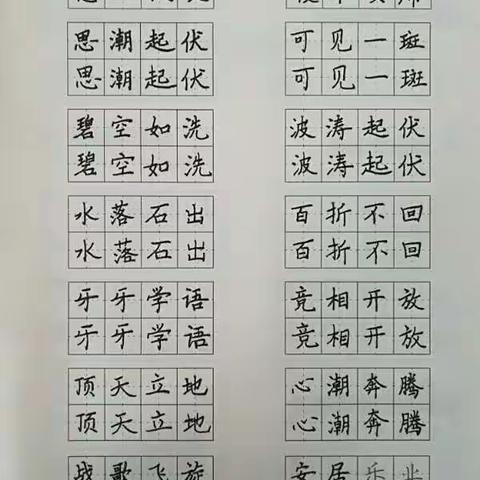 思潮起伏 可见一斑
思潮起伏 可见一斑
碧空如洗 波涛起伏
碧空如洗 波涛起伏
水落石出 百折不回
水落石出 百折不回
牙牙学语 竞相开放
牙牙学语 竞相开放
顶天立地 心潮奔腾
顶天立地 心潮奔腾
战歌飞旋 安居乐业